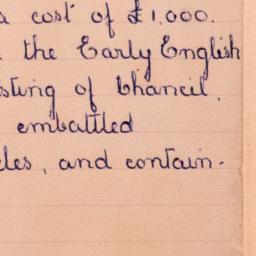 a cost of £1,000.
the Early English
sting of Chancel,
embattled
cles, and contain-